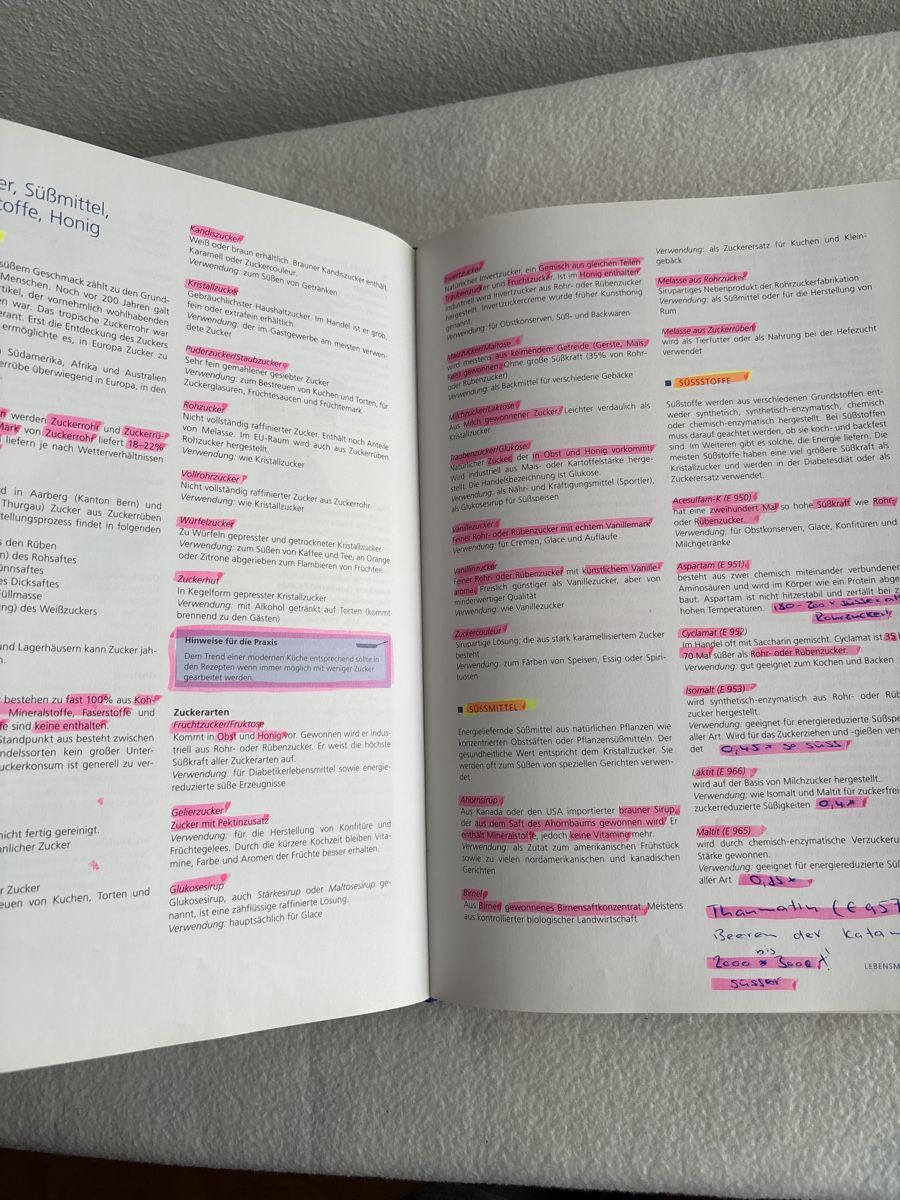 er, Süßmittel,
toffe, Honig
süßem Geschmack zählt zu den Grund-
Menschen. Noch vor 200 Jahren galt
tikel, der vornehmlich wohlhabenden
en war. Das tropische Zuckerrohr war
erant. Erst die Entdeckung des Zuckers
ermöglichte es, in Europa Zucker zu
Südamerika, Afrika und Australien
errübe überwiegend in Europa, in den
n werden Zuckerrohr und Zuckerrü-
Mark von Zuckerrohr liefert 18–22%
liefern je nach Wetterverhältnissen
d in Aarberg (Kanton Bern) und
Thurgau) Zucker aus Zuckerrüben
stellungsprozess findet in folgenden
s den Rüben
n) des Rohsaftes
ünnsaftes
es Dicksaftes
Füllmasse
ng) des Weißzuckers
und Lagerhäusern kann Zucker jah-
n.
bestehen zu fast 100% aus Koh-
Mineralstoffe, Faserstoffe und
fe sind keine enthalten.
Standpunkt aus besteht zwischen
ndelssorten kein großer Unter-
uckerkonsum ist generell zu ver-
nicht fertig gereinigt.
nlicher Zucker
r Zucker
euen von Kuchen, Torten und
Kandiszucker
Weiß oder braun erhältlich. Brauner Kandiszucker enthält
Karamell oder Zuckercouleur.
Verwendung: zum Süßen von Getränken
Kristallzucker
Gebräuchlichster Haushaltzucker. Im Handel ist er grob,
fein oder extrafein erhältlich.
Verwendung: der im Gastgewerbe am meisten verwen-
dete Zucker
Puderzucker/Staubzucker
Sehr fein gemahlener gesiebter Zucker
Verwendung: zum Bestreuen von Kuchen und Torten, für
Zuckerglasuren, Früchtesaucen und Früchtemark
Rohzucker
Nicht vollständig raffinierter Zucker. Enthält noch Anteile
von Melasse. Im EU-Raum wird auch aus Zuckerrüben
Rohzucker hergestellt.
Verwendung: wie Kristallzucker
Vollrohrzucker
Nicht vollständig raffinierter Zucker aus Zuckerrohr
Verwendung: wie Kristallzucker
Würfelzucker
Zu Würfeln gepresster und getrockneter Kristallzucker
Verwendung: zum Süßen von Kaffee und Tee, an Orange
oder Zitrone abgerieben zum Flambieren von Früchten
Zuckerhut
In Kegelform gepresster Kristallzucker
Verwendung: mit Alkohol getränkt auf Torten (kommt
brennend zu den Gästen)
Hinweise für die Praxis
Dem Trend einer modernen Küche entsprechend sollte in
den Rezepten wenn immer möglich mit weniger Zucker
gearbeitet werden.
Zuckerarten
Fruchtzucker/Fruktose
Kommt in Obst und Honig vor. Gewonnen wird er indus-
triell aus Rohr- oder Rübenzucker. Er weist die höchste
Süßkraft aller Zuckerarten auf.
Verwendung: für Diabetikerlebensmittel sowie energie-
reduzierte süße Erzeugnisse
Gelierzucker
Zucker mit Pektinzusatz
Verwendung: für die Herstellung von Konfitüre und
Früchtegelees. Durch die kürzere Kochzeit bleiben Vita-
mine, Farbe und Aromen der Früchte besser erhalten.
Glukosesirup
Glukosesirup, auch Stärkesirup oder Maltosesirup ge-
nannt, ist eine zähflüssige raffinierte Lösung.
Verwendung: hauptsächlich für Glace
Invertzucker
Natürlicher Invertzucker, ein Gemisch aus gleichen Teilen
Traubenzucker und Fruchtzucker. Ist im Honig enthalten.
Industriell wird Invertzucker aus Rohr- oder Rübenzucker
hergestellt. Invertzuckercreme wurde früher Kunsthonig
genannt.
Verwendung: für Obstkonserven, Süß- und Backwaren
Malzzucker/Maltose
Wird meistens aus keimendem Getreide (Gerste, Mais,
Reis) gewonnen. Ohne große Süßkraft (35% von Rohr-
oder Rübenzucker)
Verwendung: als Backmittel für verschiedene Gebäcke
Milchzucker/Laktose
Aus Milch gewonnener Zucker. Leichter verdaulich als
Kristallzucker
Traubenzucker/Glukose
Natürlicher Zucker, der in Obst und Honig vorkommt.
Wird industriell aus Mais- oder Kartoffelstärke herge-
stellt. Die Handelsbezeichnung ist Glukose.
Verwendung: als Nähr- und Kräftigungsmittel (Sportler),
als Glukosesirup für Süßspeisen
Vanillezucker
Feiner Rohr- oder Rübenzucker mit echtem Vanillemark
Verwendung: für Cremen, Glace und Aufläufe
Vanillinzucker
Feiner Rohr- oder Rübenzucker mit künstlichem Vanille-
aroma. Preislich günstiger als Vanillezucker, aber von
minderwertiger Qualität
Verwendung: wie Vanillezucker
Zuckercouleur
Sirupartige Lösung, die aus stark karamellisiertem Zucker
besteht
Verwendung: zum Färben von Speisen, Essig oder Spiri-
tuosen
SÜSSMITTEL
Energieliefernde Süßmittel aus natürlichen Pflanzen wie
konzentrierten Obstsäften oder Pflanzensüßmitteln. Der
gesundheitliche Wert entspricht dem Kristallzucker. Sie
werden oft zum Süßen von speziellen Gerichten verwen-
det.
Ahornsirup
Aus Kanada oder den USA importierter brauner Sirup,
der aus dem Saft des Ahornbaums gewonnen wird. Er
enthält Mineralstoffe, jedoch keine Vitamine mehr.
Verwendung: als Zutat zum amerikanischen Frühstück
sowie zu vielen nordamerikanischen und kanadischen
Gerichten
Birnel
Aus Birnen gewonnenes Birnensaftkonzentrat. Meistens
aus kontrollierter biologischer Landwirtschaft
Verwendung: als Zuckerersatz für Kuchen und Klein-
gebäck
Melasse aus Rohrzucker
Sirupartiges Nebenprodukt der Rohrzuckerfabrikation
Verwendung: als Süßmittel oder für die Herstellung von
Rum
Melasse aus Zuckerrüben
wird als Tierfutter oder als Nahrung bei der Hefezucht
verwendet
SÜSSSTOFFE
Süßstoffe werden aus verschiedenen Grundstoffen ent-
weder synthetisch, synthetisch-enzymatisch, chemisch
oder chemisch-enzymatisch hergestellt. Bei Süßstoffen
muss darauf geachtet werden, ob sie koch- und backfest
sind. Im Weiteren gibt es solche, die Energie liefern. Die
meisten Süßstoffe haben eine viel größere Süßkraft als
Kristallzucker und werden in der Diabetesdiät oder als
Zuckerersatz verwendet.
Acesulfam-K (E 950)
hat eine zweihundert Mal so hohe Süßkraft wie Rohr-
oder Rübenzucker.
Verwendung: für Obstkonserven, Glace, Konfitüren und
Milchgetränke
Aspartam (E 951)
besteht aus zwei chemisch miteinander verbundenen
Aminosäuren und wird im Körper wie ein Protein abge-
baut. Aspartam ist nicht hitzestabil und zerfällt bei z
hohen Temperaturen. 180-200 x süsser als
Rohrzucker!
Cyclamat (E 952)
Im Handel oft mit Saccharin gemischt. Cyclamat ist 35 b
70 Mal süßer als Rohr- oder Rübenzucker.
Verwendung: gut geeignet zum Kochen und Backen
Isomalt (E 953)
wird synthetisch-enzymatisch aus Rohr- oder Rüb
zucker hergestellt.
Verwendung: geeignet für energiereduzierte Süßspe
aller Art. Wird für das Zuckerziehen und -gießen verw
det 0,45x so süss
Laktit (E 966)
wird auf der Basis von Milchzucker hergestellt.
Verwendung: wie Isomalt und Maltit für zuckerfrei
zuckerreduzierte Süßigkeiten 0,4x
Maltit (E 965)
wird durch chemisch-enzymatische Verzuckeru
Stärke gewonnen.
Verwendung: geeignet für energiereduzierte Süß
aller Art
Thaumatin (E 957
Beeren der Katam
bis
2000 x 3000x!
süsser
LEBENSM